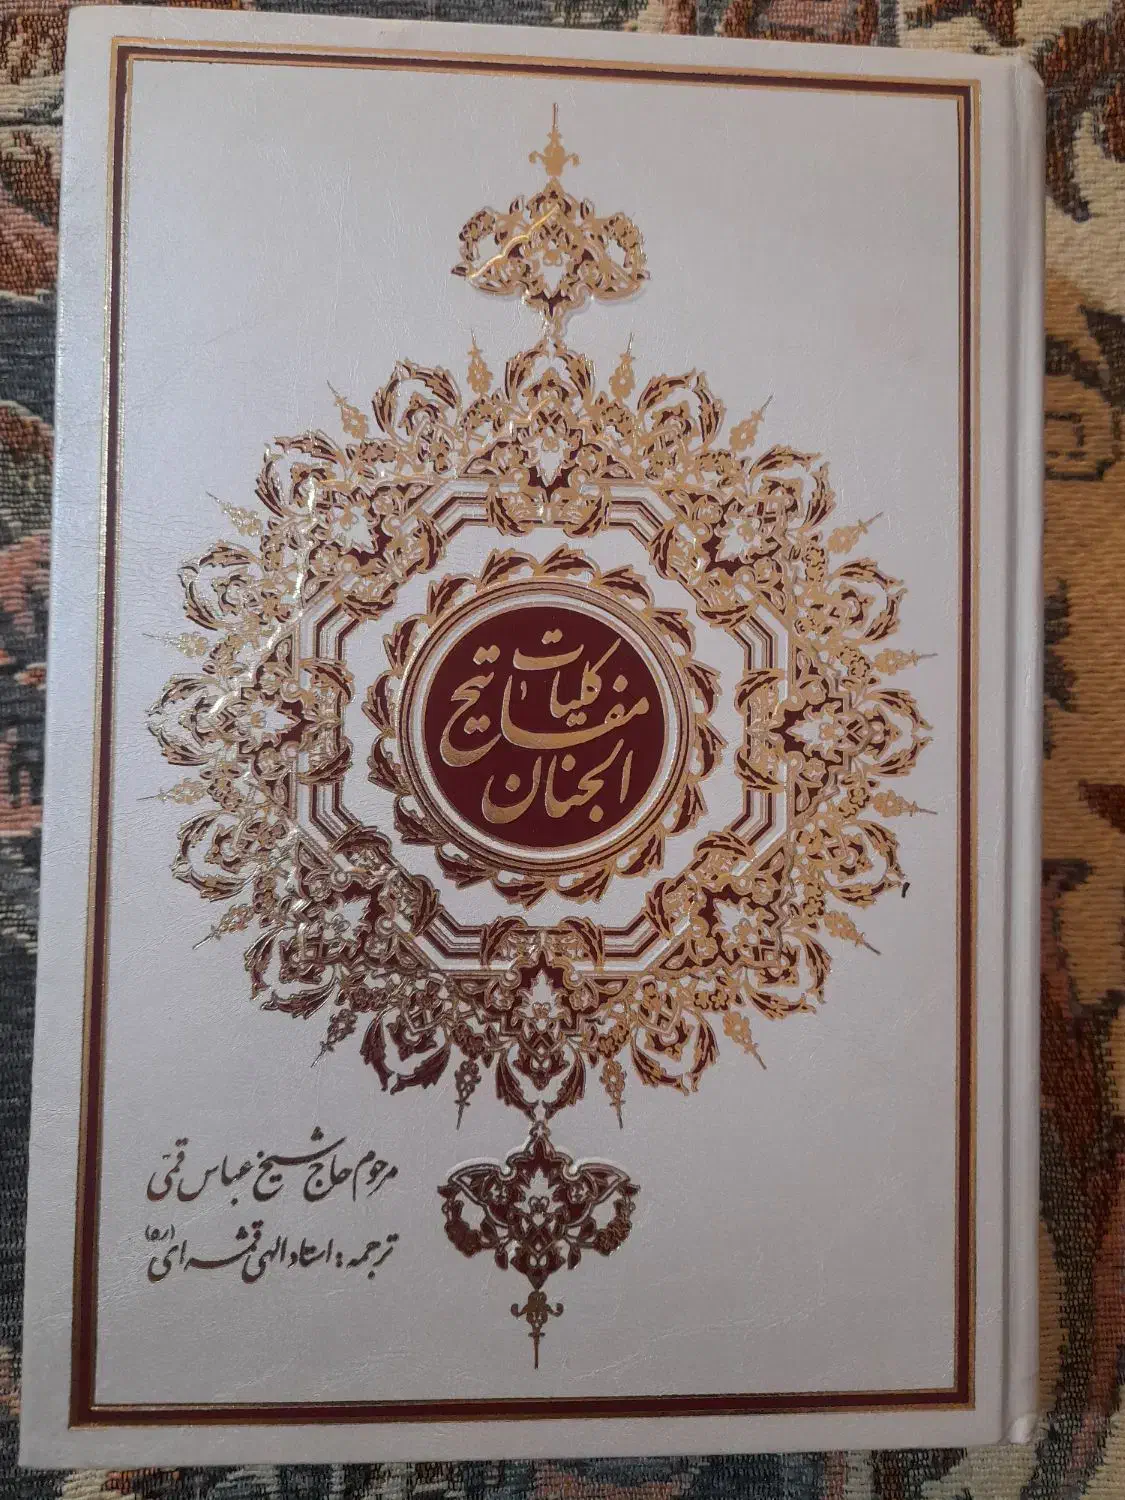 کلیات
مفاتیح
الجنان
مرحوم حاج شیخ عباس قمی
ترجمه: استاد الهی قمشه ای (ره)